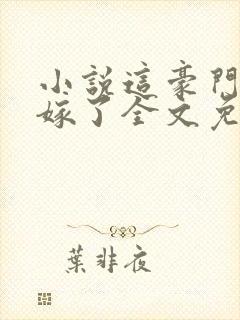 小說這豪門
嫁了全文免
葉非夜